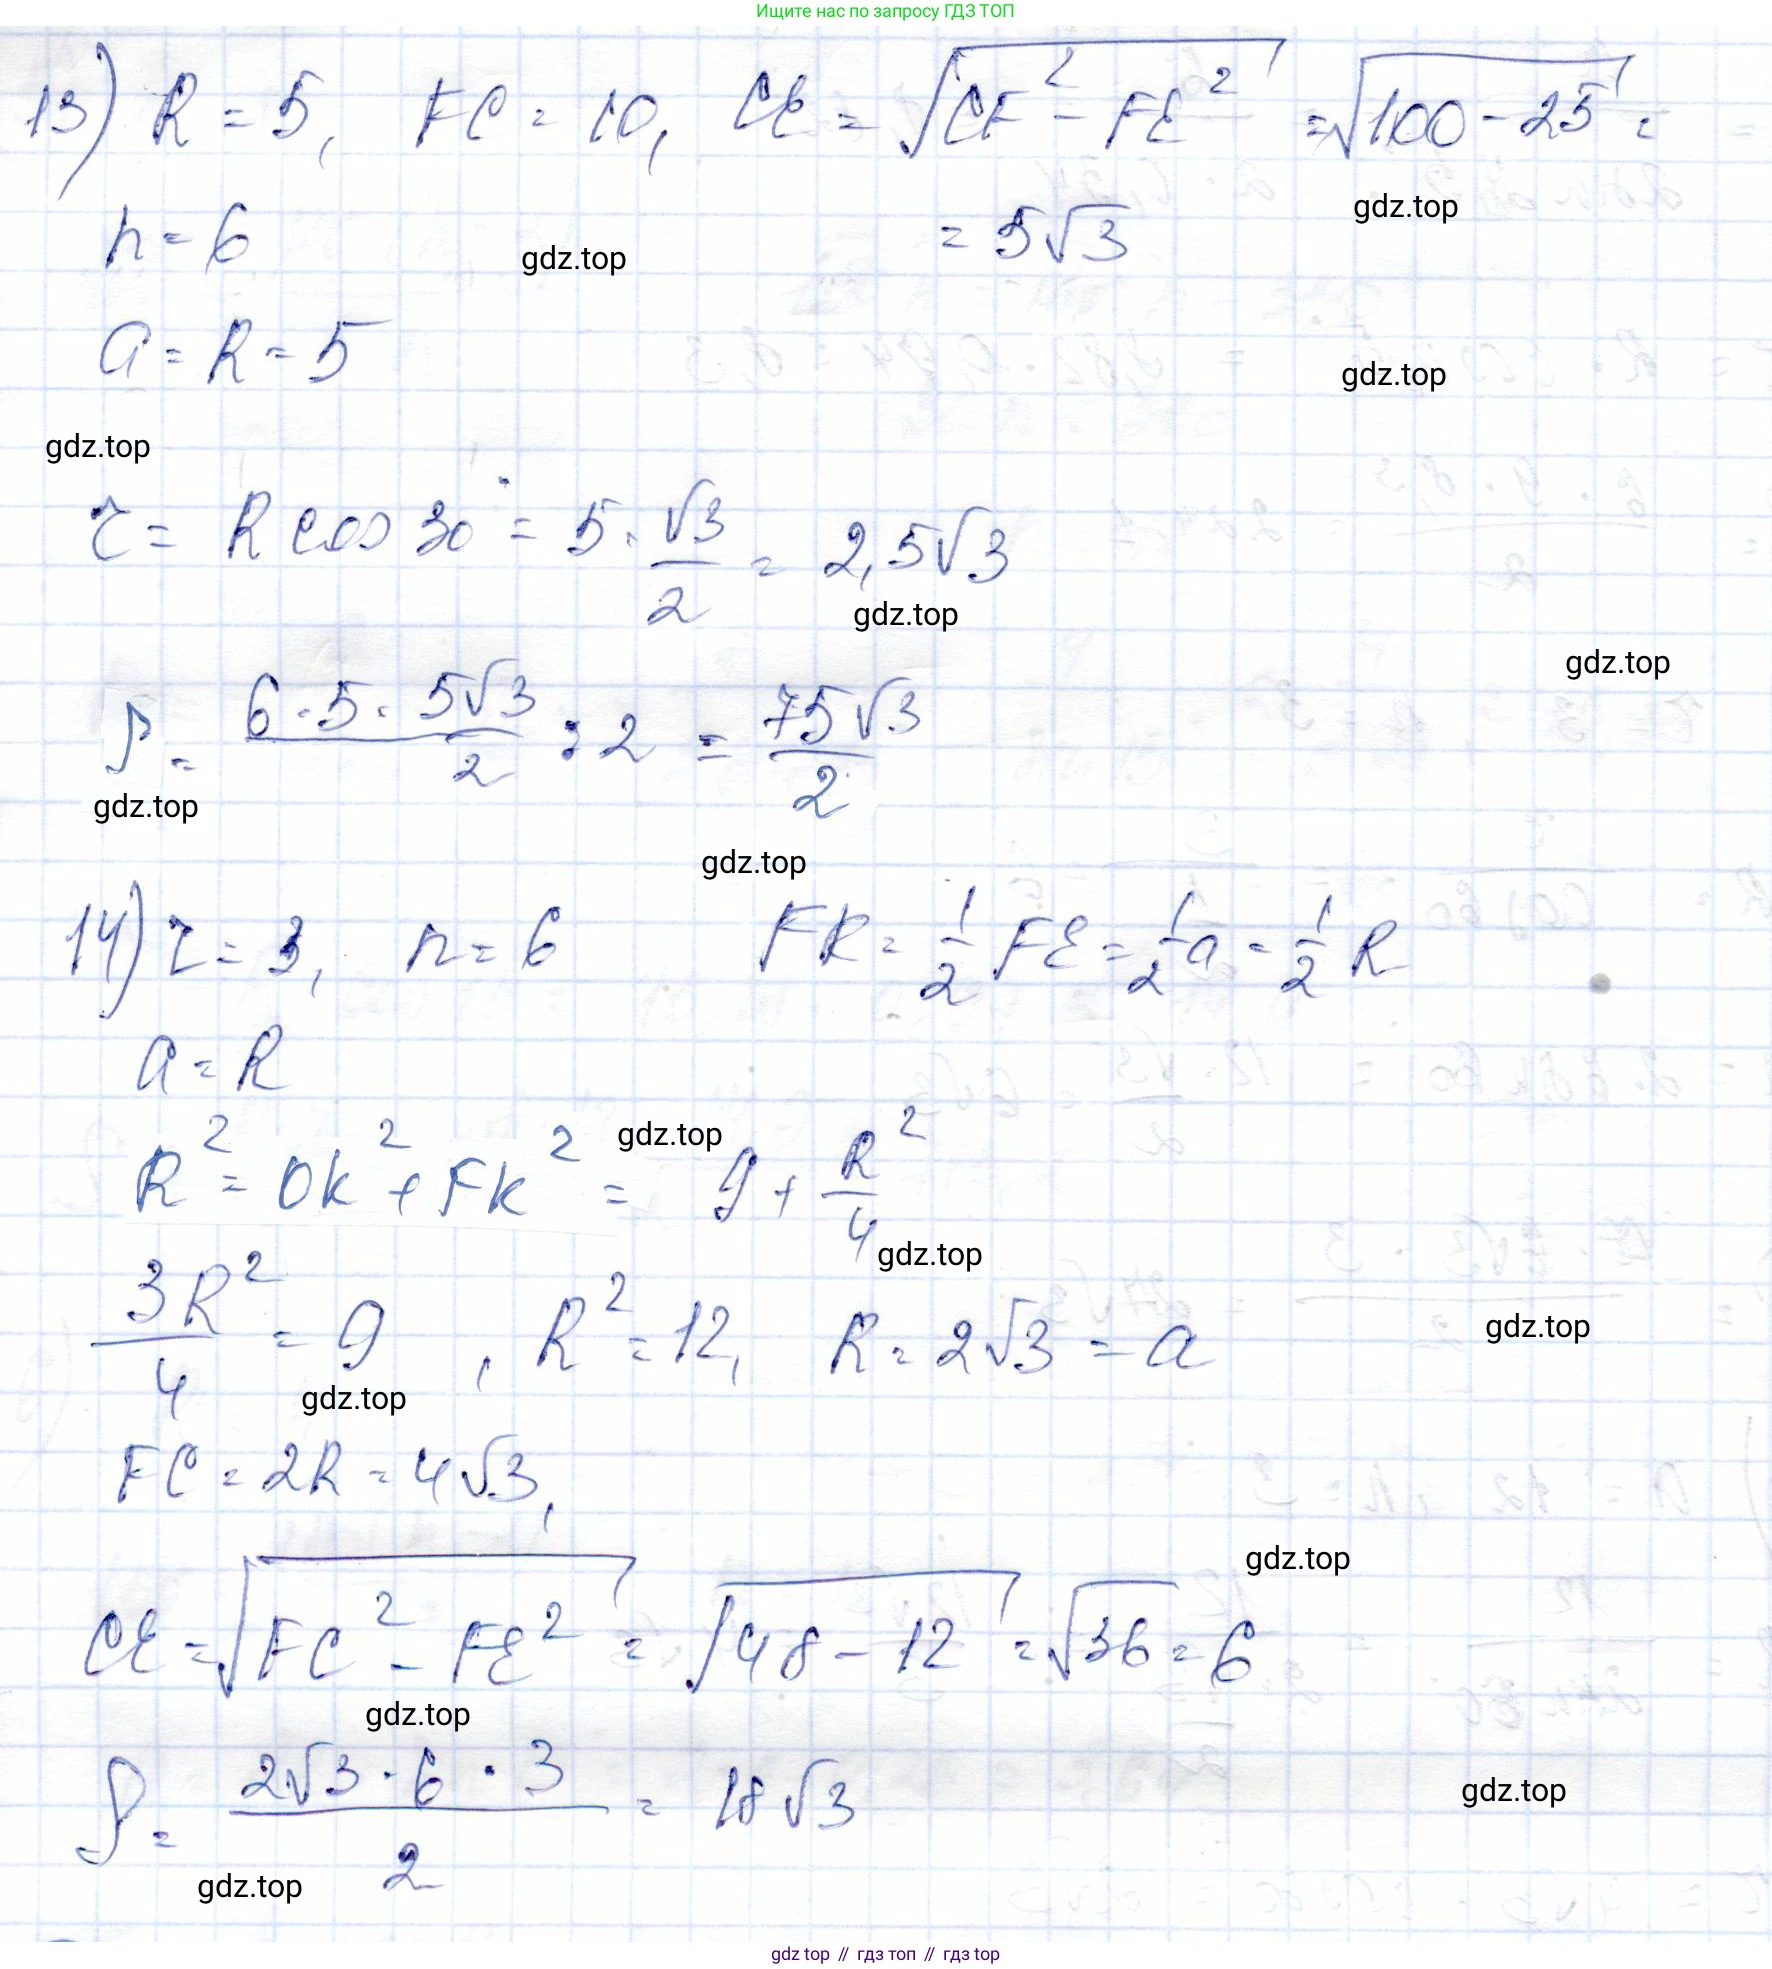 Ищите нас по запросу ГДЗ ТОП
13) R = 5, FC = 10, CE = √(CF² - FE²) = √(100 - 25) =
gdz.top
n = 6 = 5√3
gdz.top
a = R = 5
gdz.top
gdz.top
r = R cos 30° = 5 · √3/2 = 2,5√3
gdz.top
gdz.top
S = 6 · 5 · 5√3/2 : 2 = 75√3/2
gdz.top
gdz.top
14) r = 3, n = 6 FK = 1/2 FE = 1/2 a = 1/2 R
a = R
gdz.top
R² = OK² + FK² = 9 + R²/4
gdz.top
3R²/4 = 9, R² = 12, R = 2√3 = a
gdz.top
gdz.top
FC = 2R = 4√3,
gdz.top
CE = √(FC² - FE²) = √(48 - 12) = √36 = 6
gdz.top
S = 2√3 · 6 · 3/2 = 18√3
gdz.top
gdz.top
gdz top // гдз топ // гдз top